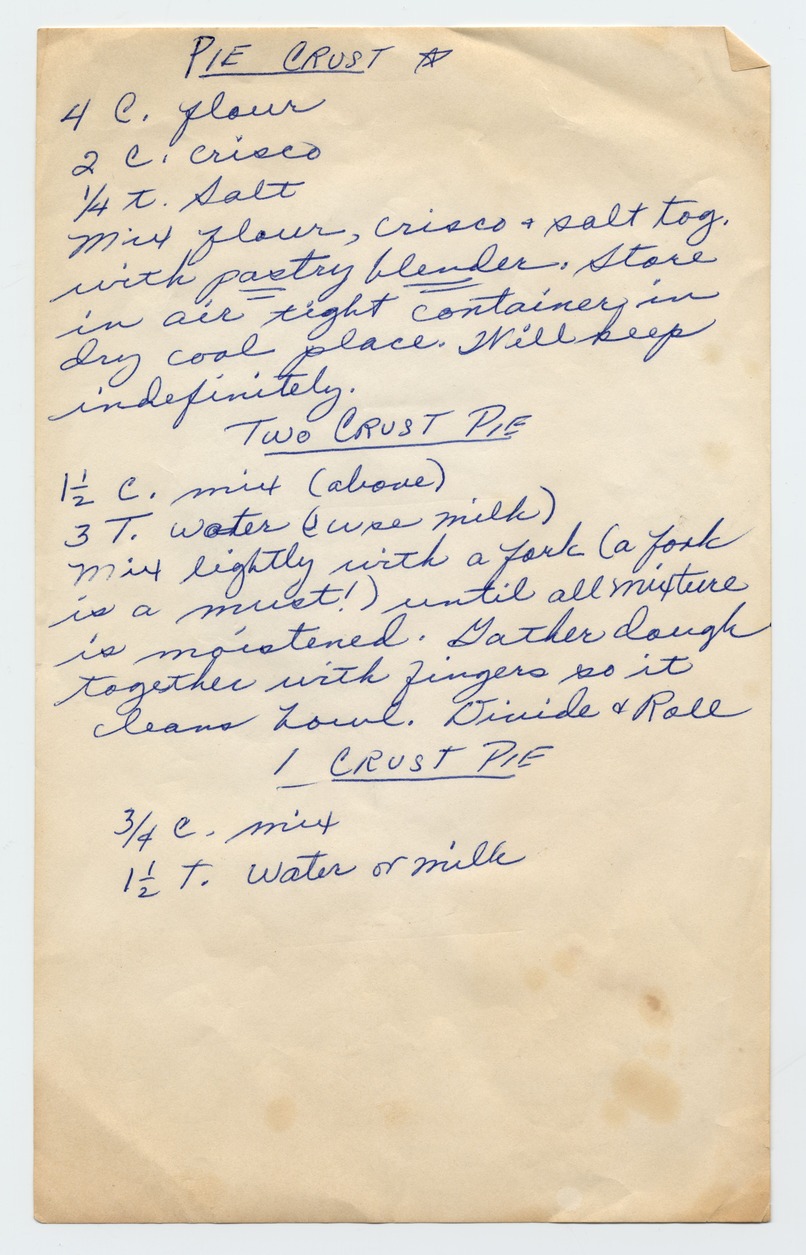 PIE CRUST ☆
4 C. flour
2 C. crisco
1/4 t. Salt
Mix flour, crisco + salt tog.
with pastry blender. Store
in air tight container, in
dry cool place. Will keep
indefinitely.
TWO CRUST PIE
1 1/2 C. mix (above)
3 T. water (I use milk)
Mix lightly with a fork (a fork
is a must!) until all mixture
is moistened. Gather dough
together with fingers so it
cleans bowl. Divide + Roll
1 CRUST PIE
3/4 C. mix
1 1/2 T. Water or milk